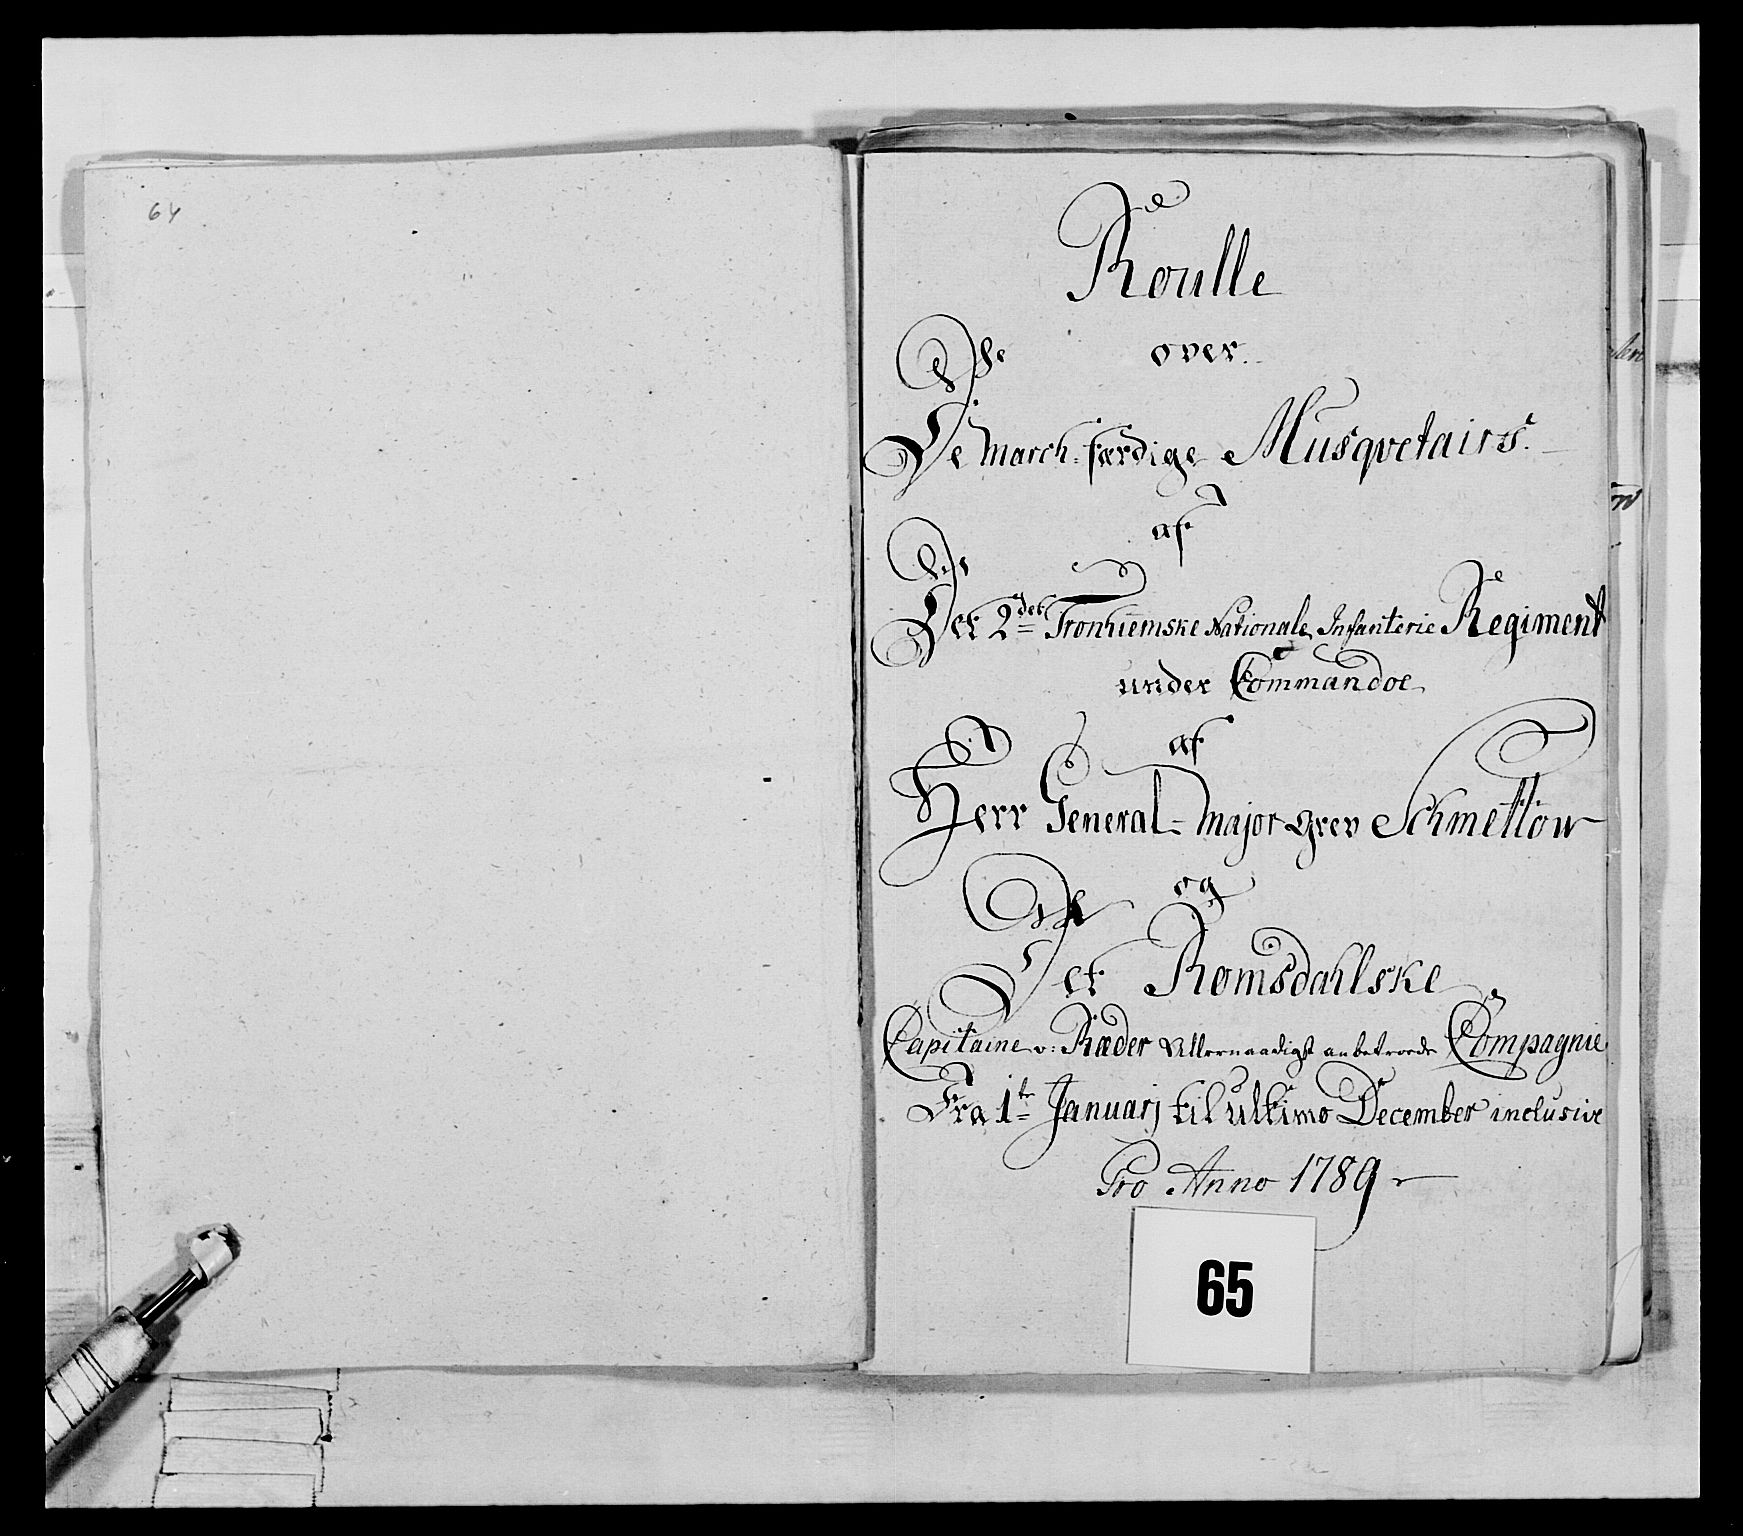 64
Roulle
over
De March-færdige Musqvetairs.
af
Det 2det Tronhiemske Nationale Infanterie Regiment
under Commandoe
af
Herr General-Major Grev Schmettow
og
Det Romsdahlske
Capitaine v: Ræder Allernaadigst anbetroede Compagnie
Fra 1te Januarj til ultimo December inclusive
Pro Anno 1789
65